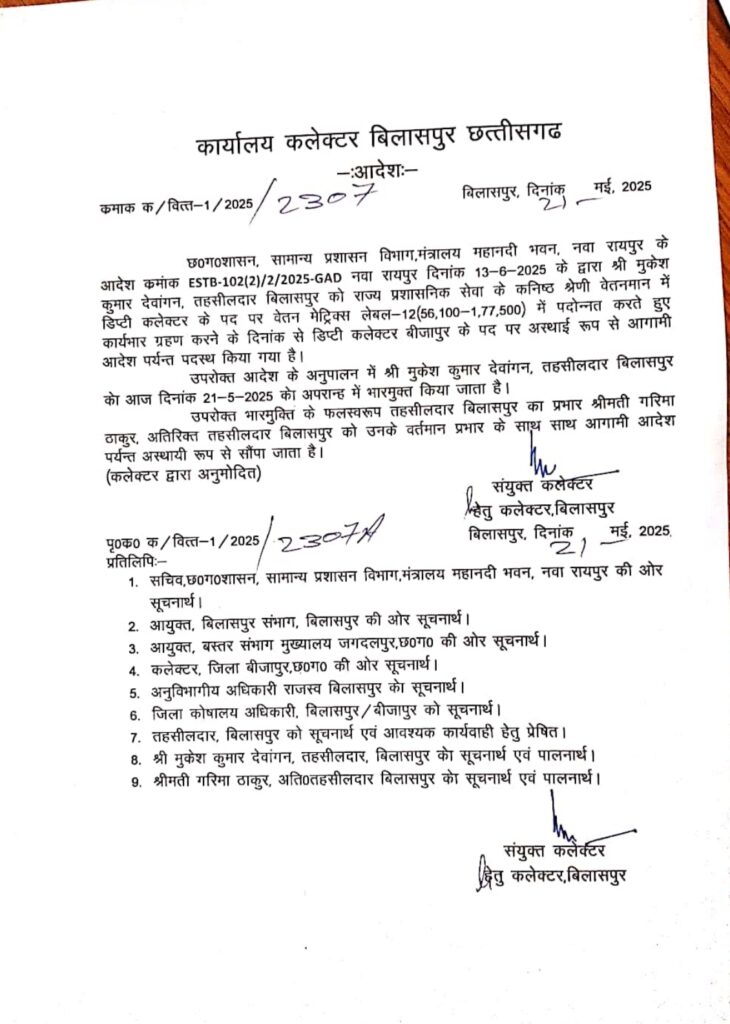 कार्यालय कलेक्टर बिलासपुर छत्तीसगढ
–:आदेशः–
कमाक क/वित्त–1/2025/2307
बिलासपुर, दिनांक 21 मई, 2025
छ0ग0शासन, सामान्य प्रशासन विभाग,मंत्रालय महानदी भवन, नवा रायपुर के
आदेश कमांक ESTB-102(2)/2/2025-GAD नवा रायपुर दिनांक 13–6–2025 के द्वारा श्री मुकेश
कुमार देवांगन, तहसीलदार बिलासपुर को राज्य प्रशासनिक सेवा के कनिष्ठ श्रेणी वेतनमान में
डिप्टी कलेक्टर के पद पर वेतन मेट्रिक्स लेबल–12(56,100–1,77,500) में पदोन्नत करते हुए
कार्यभार ग्रहण करने के दिनांक से डिप्टी कलेक्टर बीजापुर के पद पर अस्थाई रूप से आगामी
आदेश पर्यन्त पदस्थ किया गया है।
उपरोक्त आदेश के अनुपालन में श्री मुकेश कुमार देवांगन, तहसीलदार बिलासपुर
केा आज दिनांक 21–5–2025 केा अपरान्ह में भारमुक्त किया जाता है।
उपरोक्त भारमुक्ति के फलस्वरूप तहसीलदार बिलासपुर का प्रभार श्रीमती गरिमा
ठाकुर, अतिरिक्त तहसीलदार बिलासपुर को उनके वर्तमान प्रभार के साथ साथ आगामी आदेश
पर्यन्त अस्थायी रूप से सौंपा जाता है।
(कलेक्टर द्वारा अनुमोदित)
संयुक्त कलेक्टर
हेतु कलेक्टर,बिलासपुर
पृ0क0 क/वित्त–1/2025/2307A
बिलासपुर, दिनांक 21 मई, 2025
प्रतिलिपिः–
1. सचिव,छ0ग0शासन, सामान्य प्रशासन विभाग,मंत्रालय महानदी भवन, नवा रायपुर की ओर
सूचनार्थ।
2. आयुक्त, बिलासपुर संभाग, बिलासपुर की ओर सूचनार्थ।
3. आयुक्त, बस्तर संभाग मुख्यालय जगदलपुर,छ0ग0 की ओर सूचनार्थ।
4. कलेक्टर, जिला बीजापुर,छ0ग0 की ओर सूचनार्थ।
5. अनुविभागीय अधिकारी राजस्व बिलासपुर केा सूचनार्थ।
6. जिला कोषालय अधिकारी, बिलासपुर/बीजापुर को सूचनार्थ।
7. तहसीलदार, बिलासपुर को सूचनार्थ एवं आवश्यक कार्यवाही हेतु प्रेषित।
8. श्री मुकेश कुमार देवांगन, तहसीलदार, बिलासपुर केा सूचनार्थ एवं पालनार्थ।
9. श्रीमती गरिमा ठाकुर, अति0तहसीलदार बिलासपुर केा सूचनार्थ एवं पालनार्थ।
संयुक्त कलेक्टर
हेतु कलेक्टर,बिलासपुर